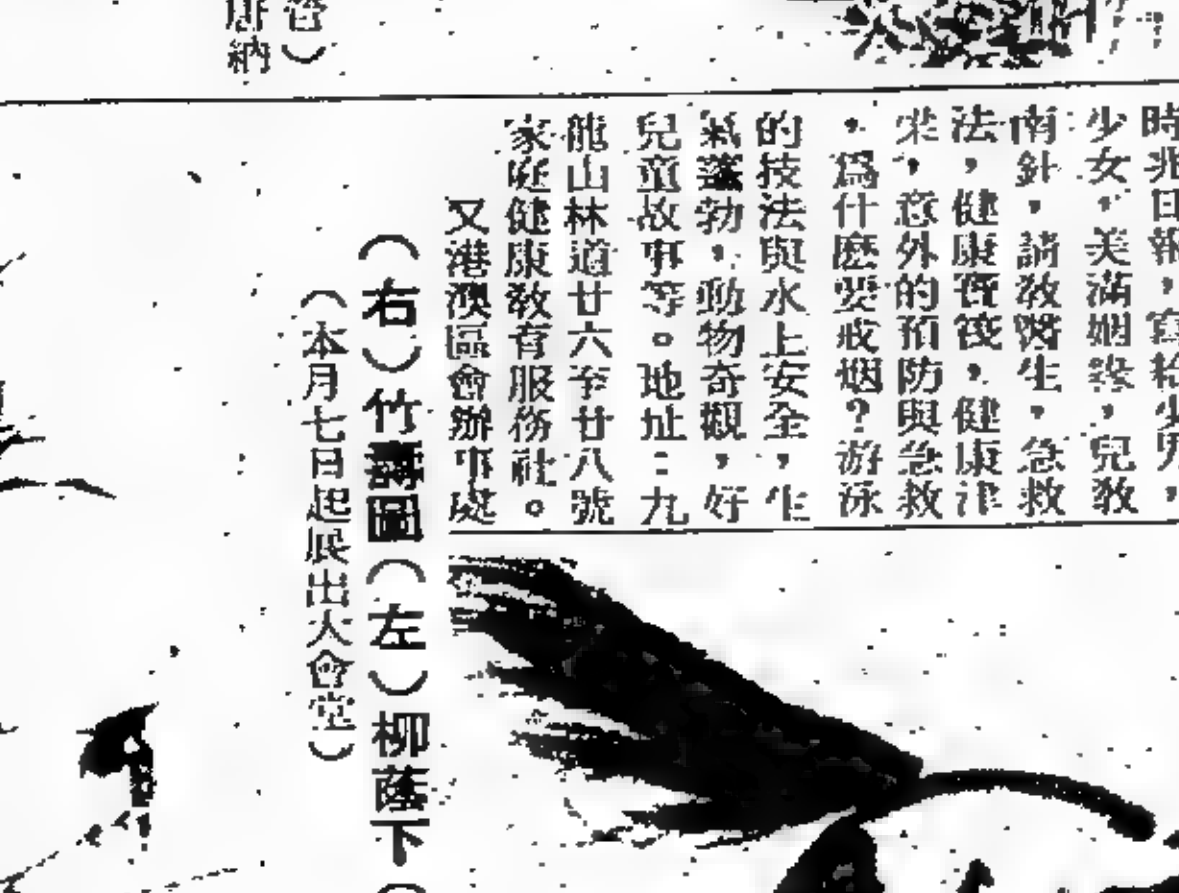 時兆日報，寫給少男，
少女，美滿姻緣，兒敎
南針，請敎醫生，急救
法，健康寶筏，健康津
梁，意外的預防與急救
，爲什麽要戒烟？游泳
的技法與水上安全，生
氣蓬勃，動物奇觀，好
兒童故事等。地址：九
龍山林道廿六至廿八號
家庭健康敎育服務社。
又港澳區會辦事處
（右）竹壽圖（左）柳蔭下（
（本月七日起展出大會堂）
）
納